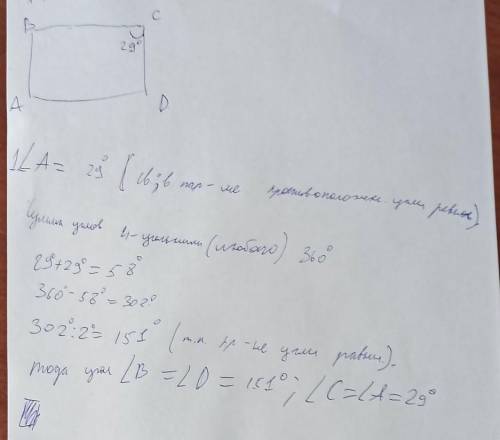 B C
29°
A D
1 ∠A = 29° (св-в пар-ме противополож. углы равны)
Сумма углов 4-угольника (любого) 360°
29°+29°=58°
360°-58°=302°
302°:2°=151° (т.к. пр-ые углы равны).
тогда угол ∠B=∠D=151°; ∠C=∠A=29°